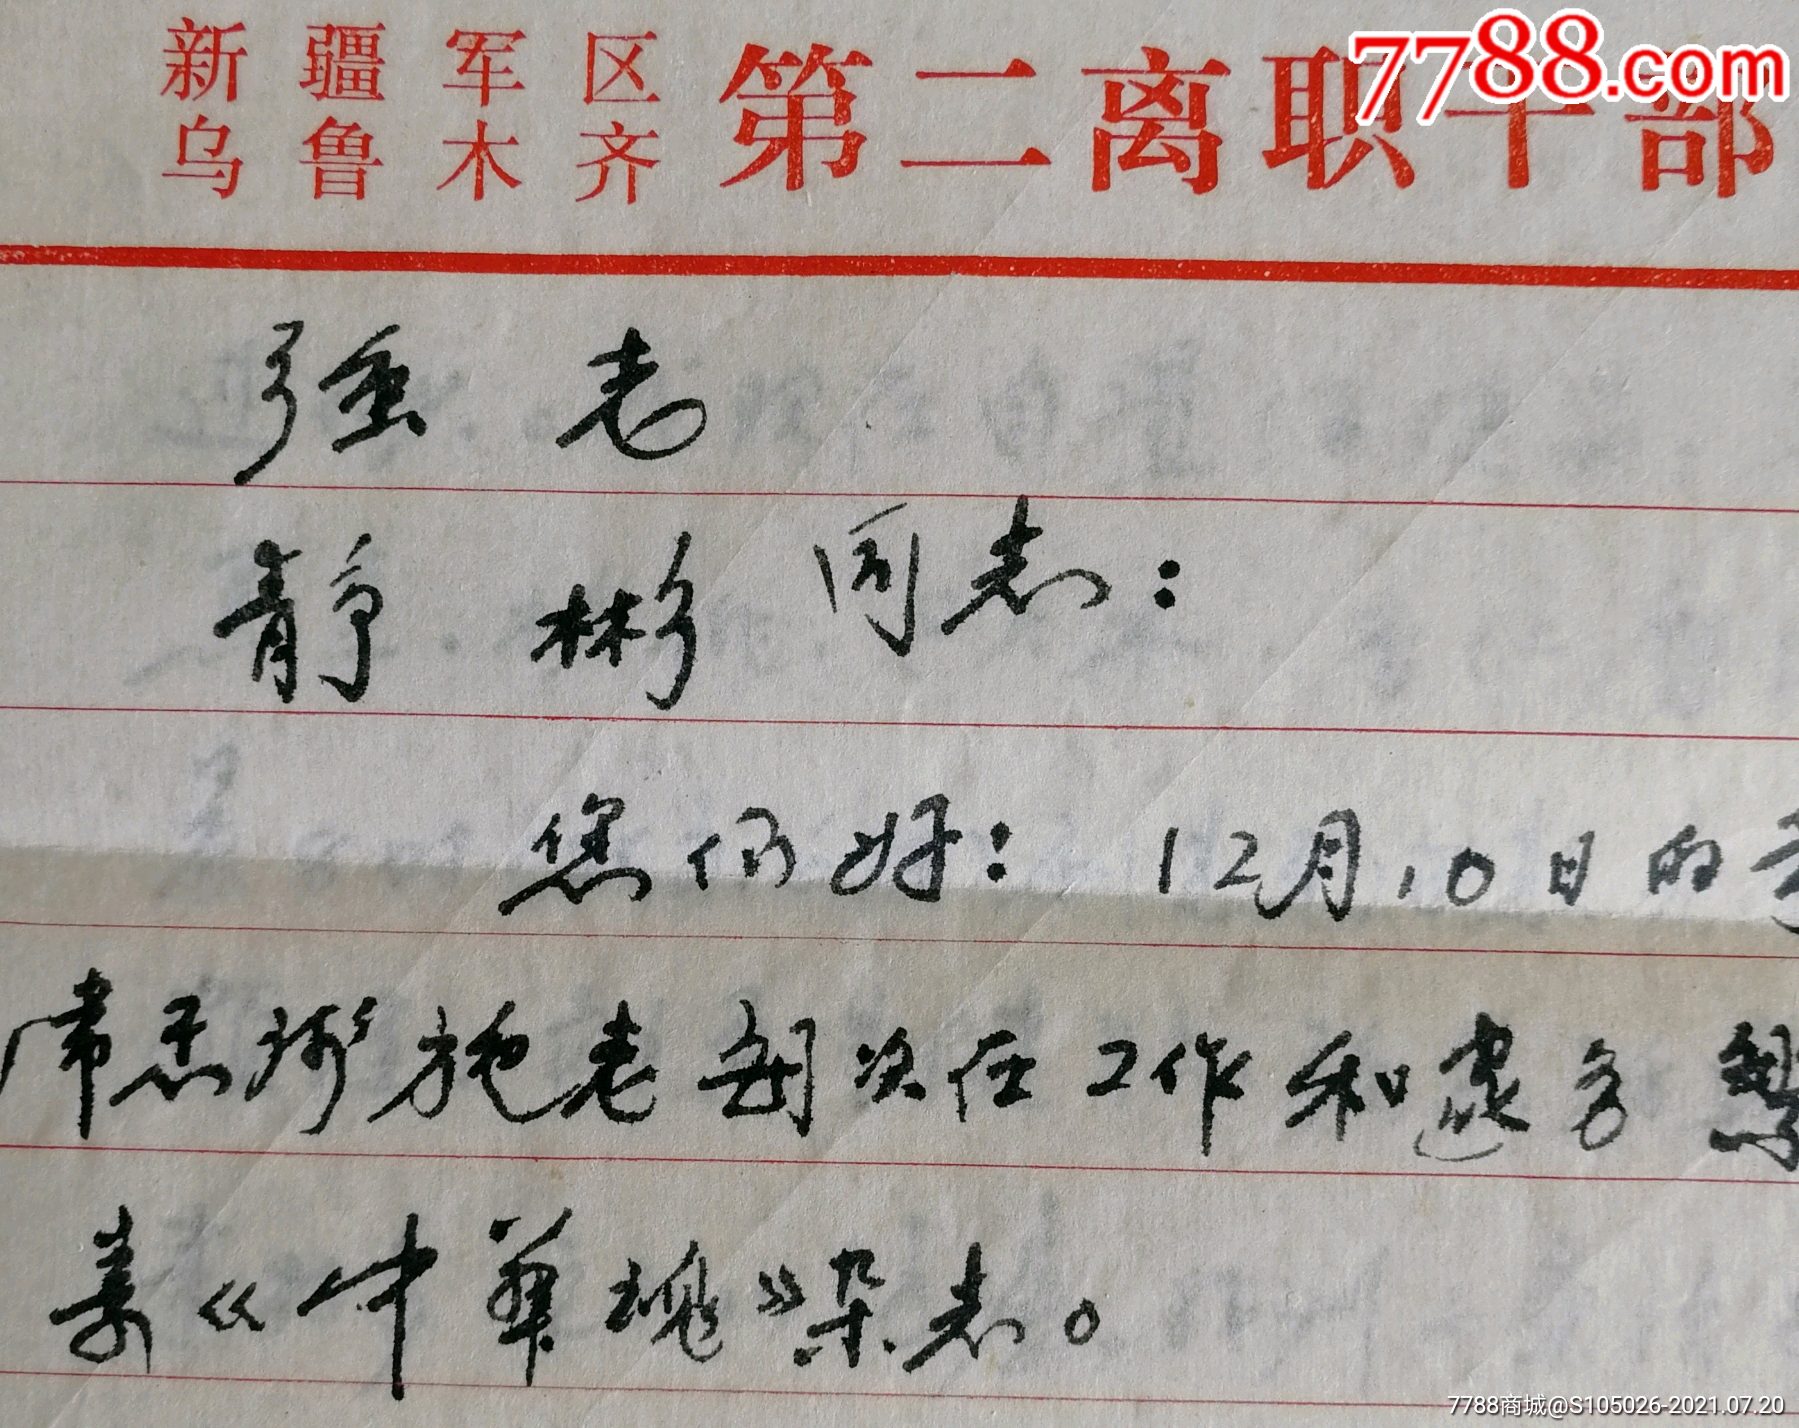 7788.com
新疆军区
乌鲁木齐
第二离职干部
强老
静彬同志：
您们好：12月10日的
常感谢施老每次在工作和家务繁
寄《中华魂》杂志。
7788商城@S105026-2021.07.20